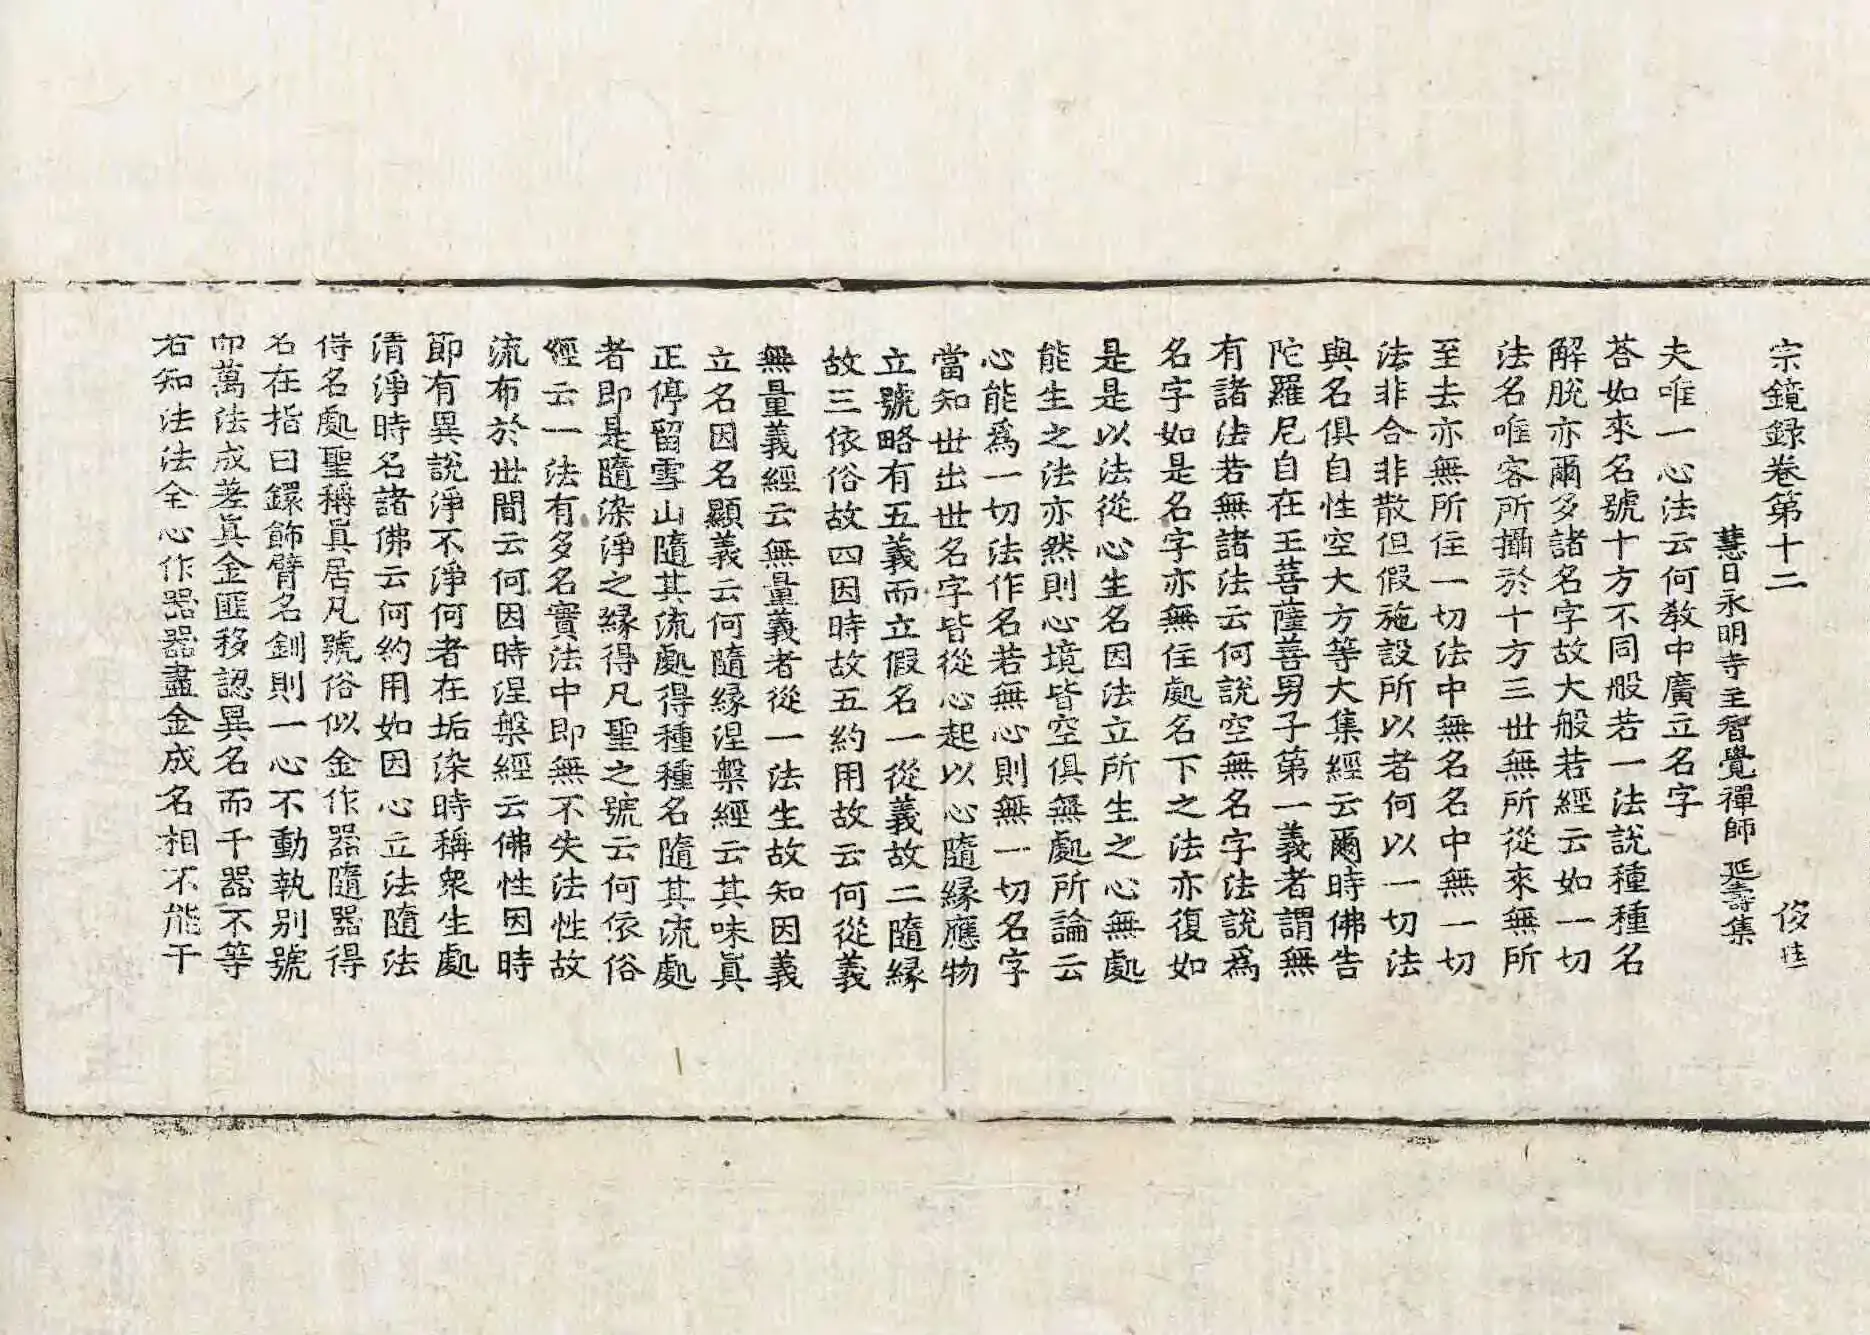 宗鏡錄卷第十二 俊
慧日永明寺主智覺禪師 延壽集
夫唯一心法云何教中廣立名字
荅如來名號十方不同般若一法說種種名
解脫亦爾多諸名字故大般若經云如一切
法名唯客所攝於十方三世無所從來無所
至去亦無所住一切法中無名名中無一切
法非合非散但假施設所以者何以一切法
與名俱自性空大方等大集經云爾時佛告
陀羅尼自在王菩薩善男子第一義者謂無
有諸法若無諸法云何說空無名字法說爲
名字如是名字亦無住處名下之法亦復如
是是以法從心生名因法立所生之心無處
能生之法亦然則心境皆空俱無處所論云
心能爲一切法作名若無心則無一切名字
當知世出世名字皆從心起以心隨緣應物
立號略有五義而立假名一從義故二隨緣
故三依俗故四因時故五約用故云何從義
無量義經云無量義者從一法生故知因義
立名因名顯義云何隨緣涅槃經云其味眞
正停留雪山隨其流處得種種名隨其流處
者即是隨染淨之緣得凡聖之號云何依俗
經云一法有多名實法中即無不失法性故
流布於世間云何因時涅槃經云佛性因時
節有異說淨不淨何者在垢染時稱衆生處
清淨時名諸佛云何約用如因心立法隨法
得名處聖稱眞居凡號俗似金作器隨器得
名在指曰鐶飾臂名釧則一心不動執別號
而萬法成差眞金匪移認異名而千器不等
若知法法全心作器器盡金成名相不能干